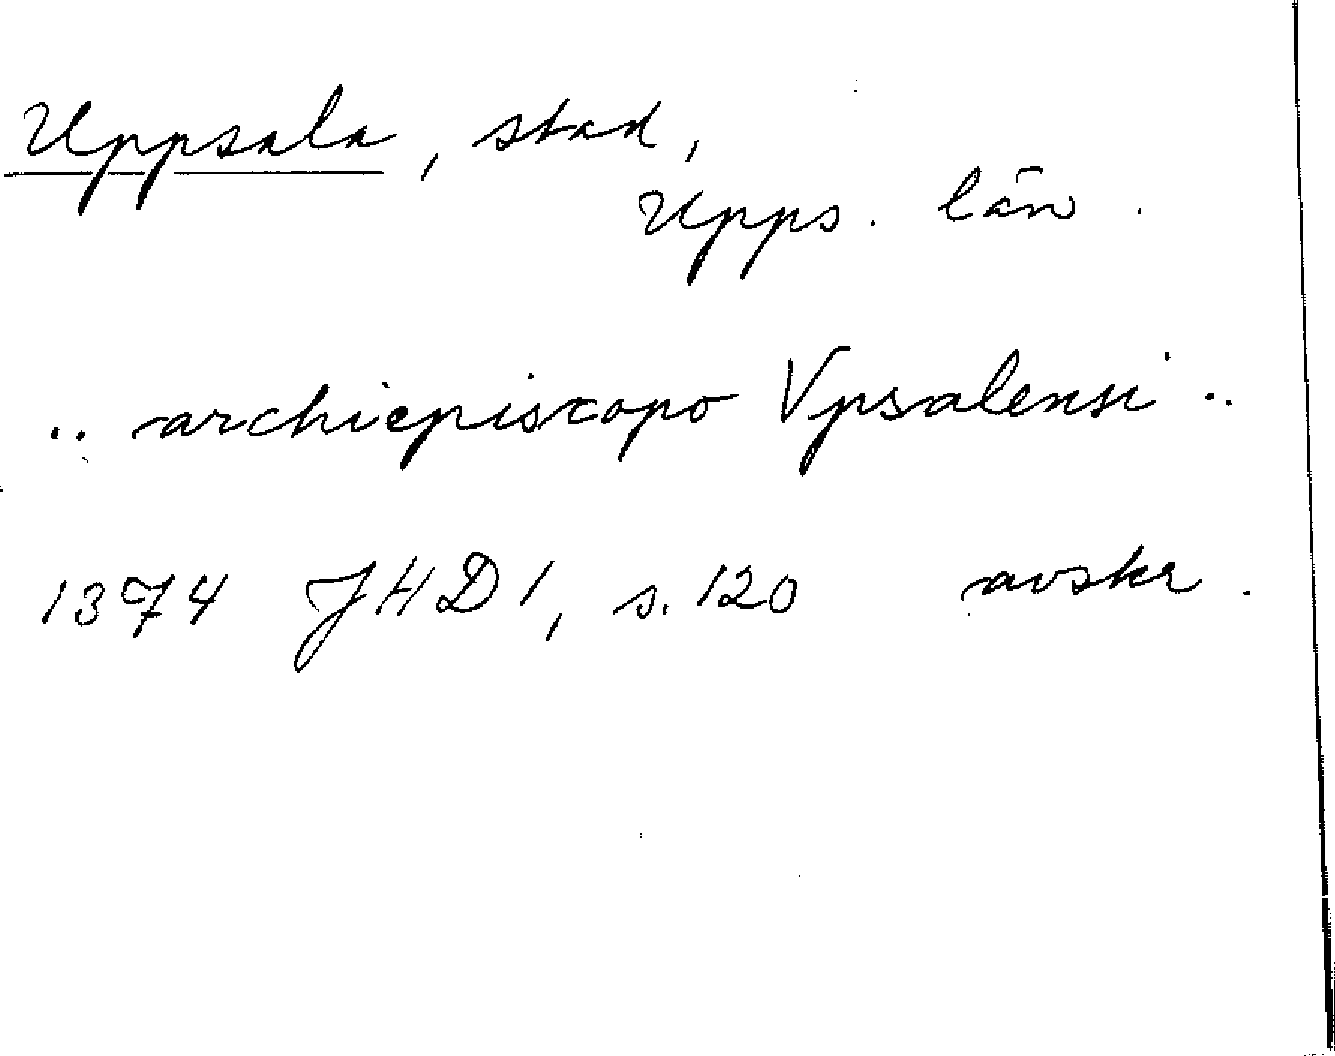 Uppsala, stad,
Upps. län.
.. archiepiscopo Vpsalensi ..
1374 JHD 1, s. 120 avskr.